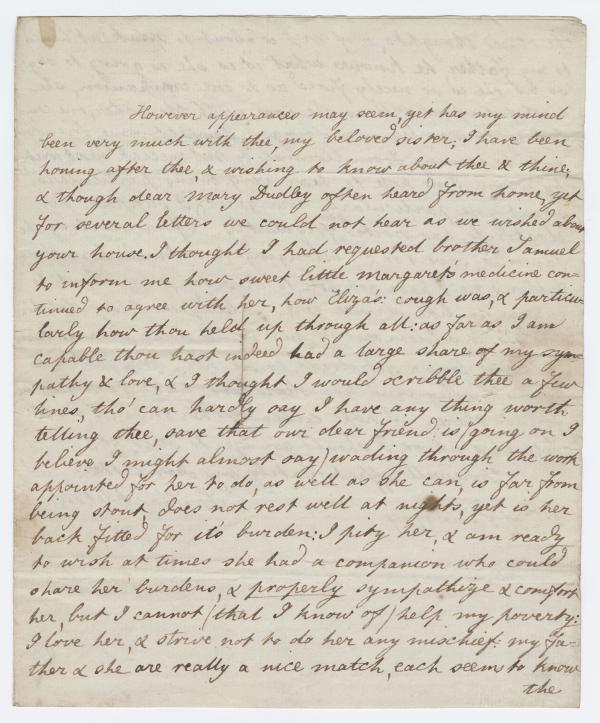 However appearances may seem, yet has my mind
been very much with thee, my beloved sister; I have been
honing after thee & wishing to know about thee & thine;
& though dear Mary Dudley often heard from home, yet
for several letters we could not hear as we wished about
your house. I thought I had requested brother Samuel
to inform me how sweet little Margaret's medicine con=
tinued to agree with her, how Eliza's: cough was, & particu=
larly how thou held up through all: as far as I am
capable thou hast indeed had a large share of my sym=
pathy & love, & I thought I would scribble thee a few
lines, tho' can hardly say I have any thing worth
telling thee, save that our dear friend is (going on I
believe I might almost say) wading through the work
appointed for her to do, as well as she can, is far from
being stout, does not rest well at nights, yet is her
back fitted for it's burden: I pity her, & am ready
to wish at times she had a companion who could
share her burdens, & properly sympathize & comfort
her, but I cannot (that I know of) help my poverty:
I love her, & strive not to do her any mischief: my fa=
ther & she are really a nice match, each seems to know
the